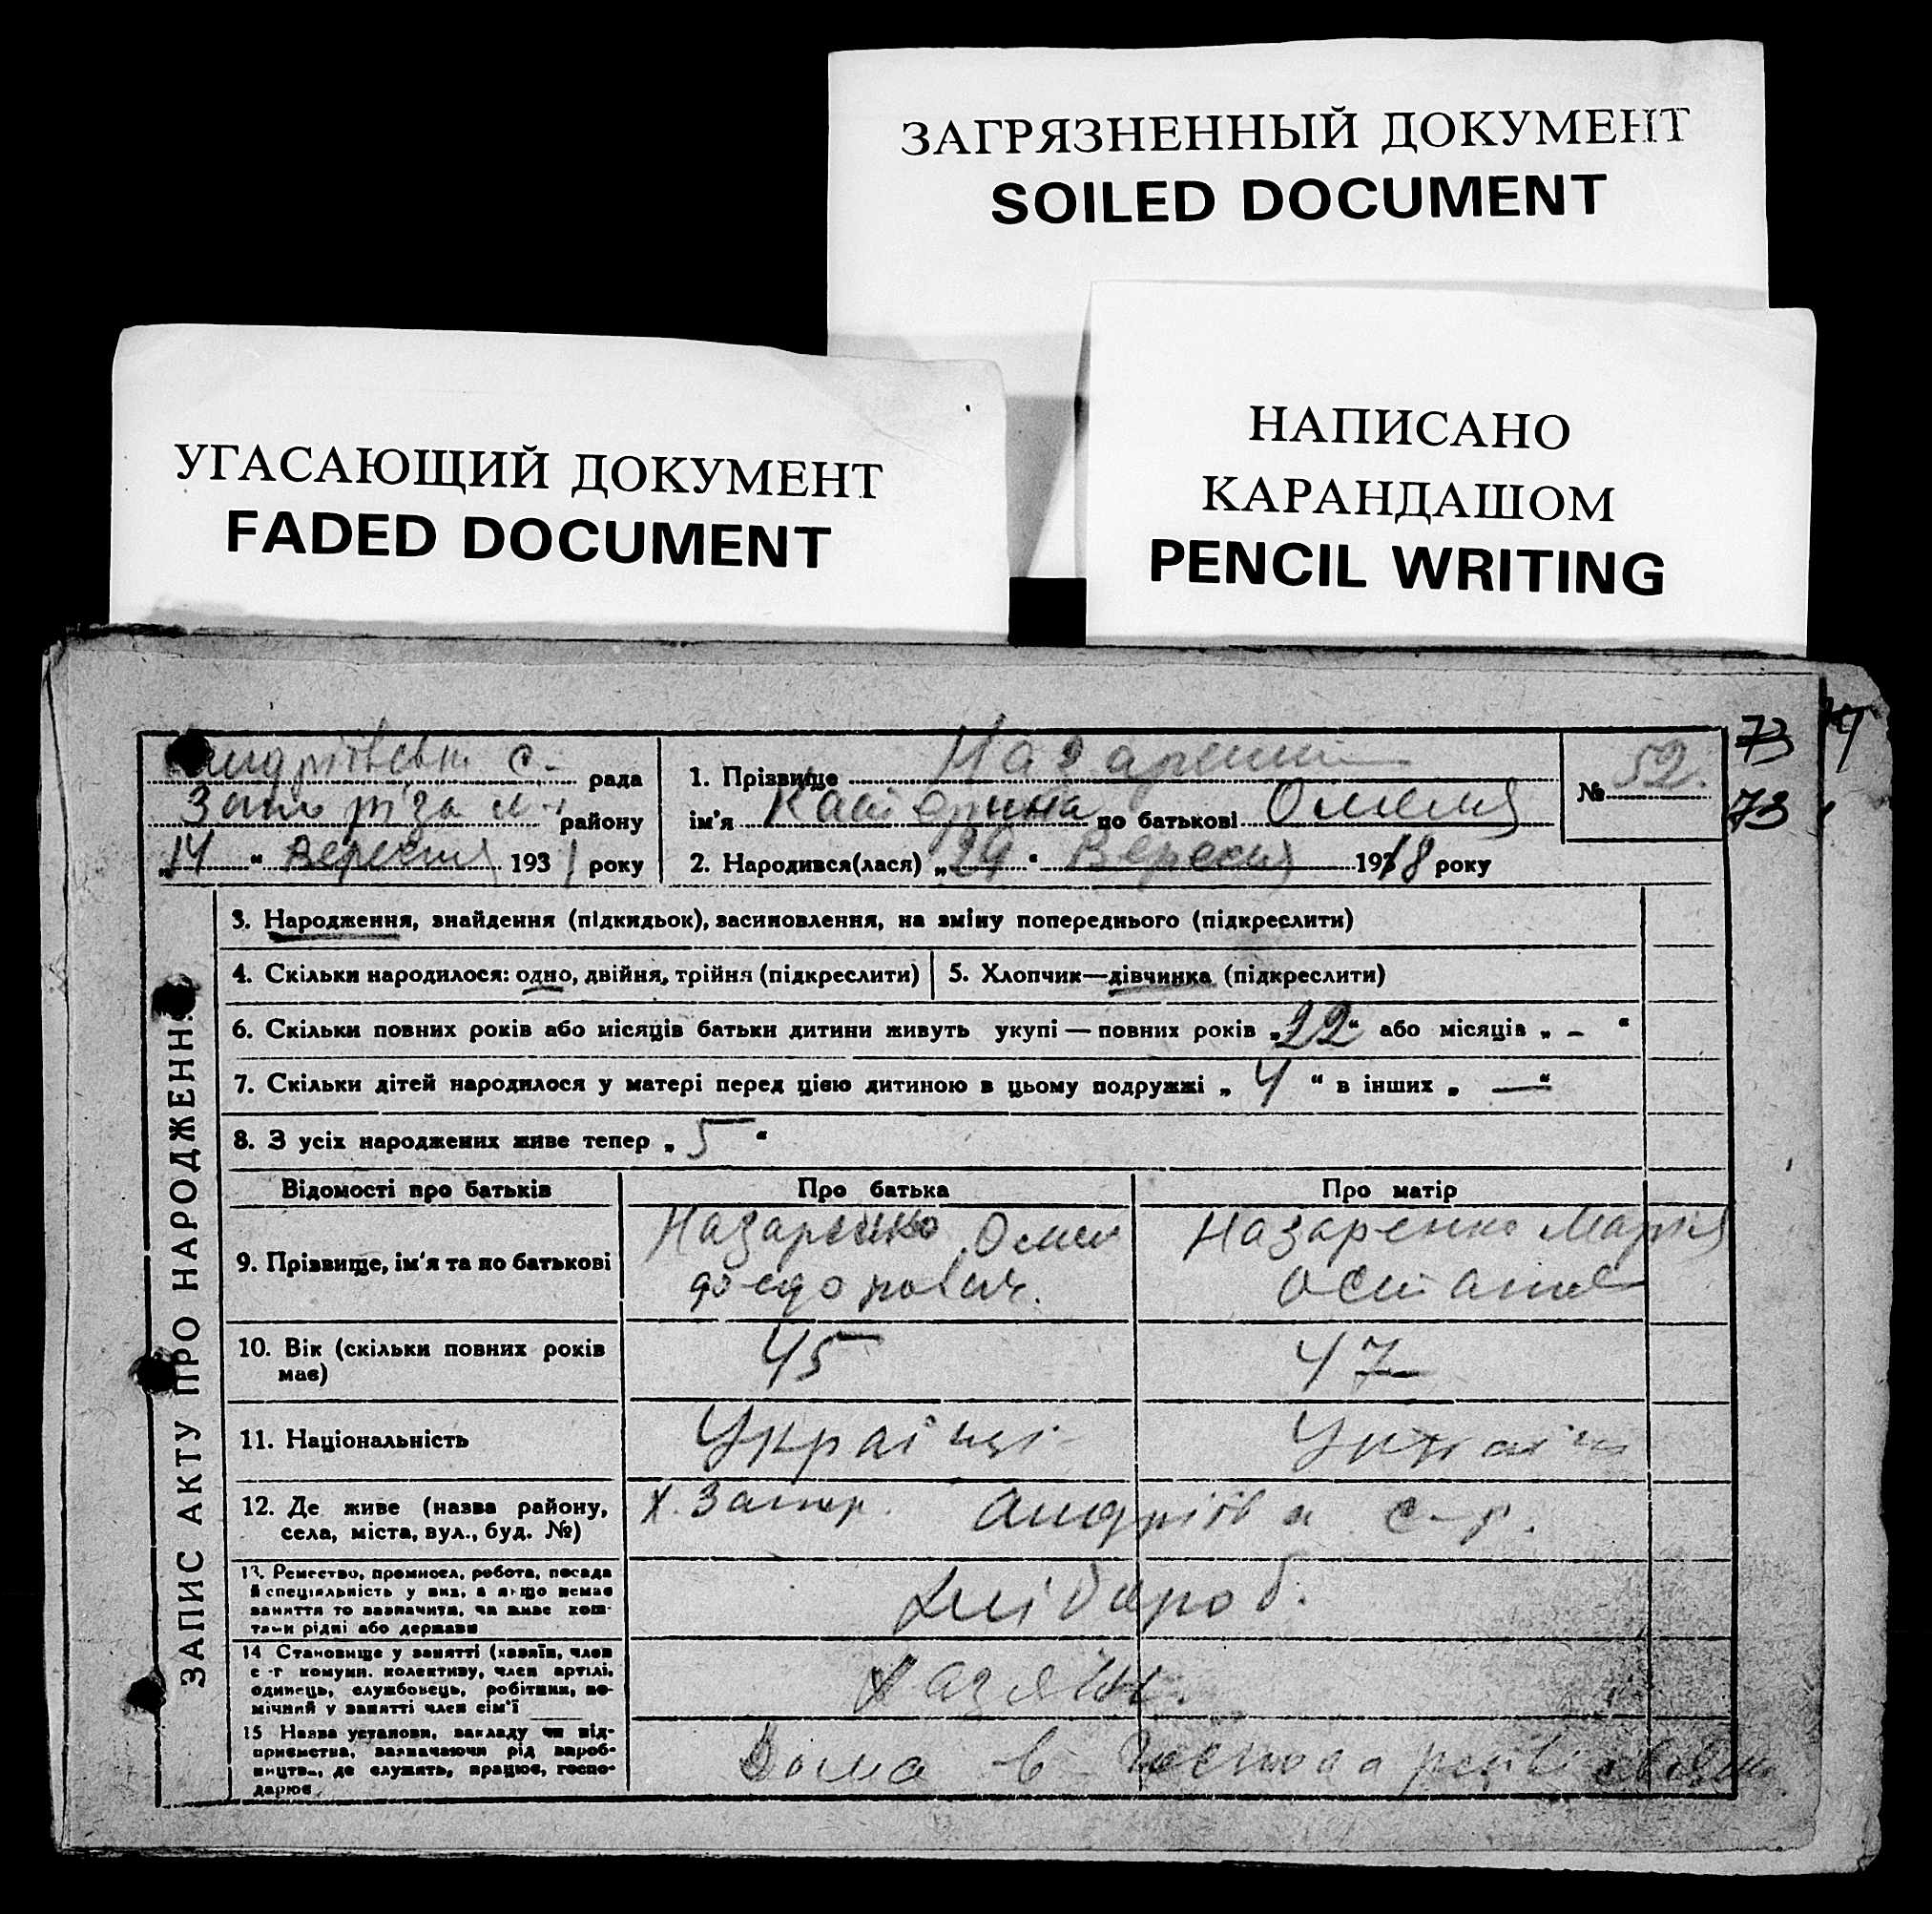 ЗАГРЯЗНЕННЫЙ ДОКУМЕНТ
SOILED DOCUMENT
НАПИСАНО
КАРАНДАШОМ
PENCIL WRITING
УГАСАЮЩИЙ ДОКУМЕНТ
FADED DOCUMENT
73
73
рада
району
„14“ Вересня 1931 року
1. Прізвище Назаренко
ім'я Катерина по батькові Омеля
2. Народився(лася) „29“ Вересня 1918 року
№ 52.
ЗАПИС АКТУ ПРО НАРОДЖЕНН
3. Народження, знайдення (підкидьок), засиновлення, на зміну попереднього (підкреслити)
4. Скільки народилося: одно, двійня, трійня (підкреслити)
5. Хлопчик—дівчинка (підкреслити)
6. Скільки повних років або місяців батьки дитини живуть укупі — повних років „22“ або місяців „ – “
7. Скільки дітей народилося у матері перед цією дитиною в цьому подружжі „ 4 “ в інших „ — “
8. З усіх народжених живе тепер „ 5 “
Відомості про батьків
Про батька
Про матір
9. Прізвище, ім'я та по батькові
Назаренко Омел
Федорович.
Назаренко Марія
Остапів
10. Вік (скільки повних років
має)
45
47
11. Національність
Українці
Україн
12. Де живе (назва району,
села, міста, вул., буд. №)
х. Запор. Андріїв с-р.
13. Ремество, промисел, робота, посада
й спеціяльність у них, а якщо немає
заняття то зазначити, чи живе кош-
тами рідні або держави
Хлібороб.
14 Становище у занятті (хазяїн, член
с-г комуни, колективу, член артілі,
одинець, службовець, робітник, по-
мічний у занятті член сім'ї
Хазяїн.
15 Назва установи, закладу чи під-
приємства, зазначаючи рід вироб-
ництва, де служить, працює, госпо-
дарює
Дома в господарстві